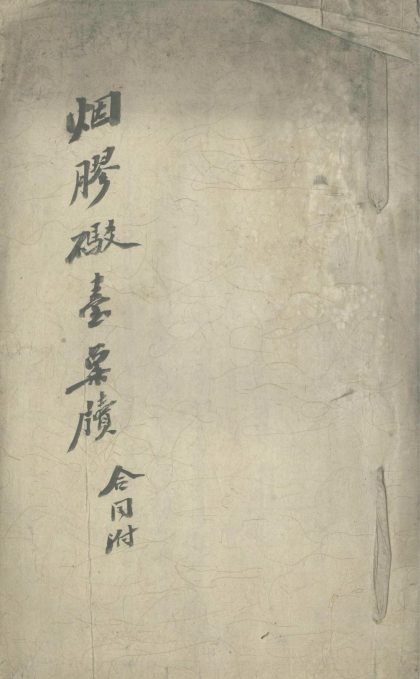 烟膠礮臺稟牘
合同附